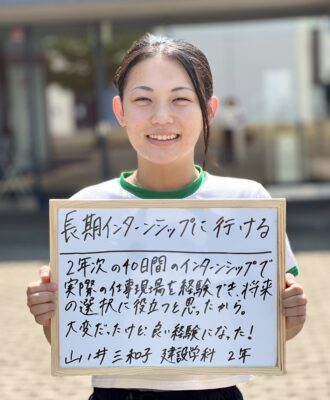 長期インターンシップに行ける
2年次の40日間のインターンシップで
実際の仕事現場を経験でき、将来
の選択に役立つと思ったから。
大変だったけど、良い経験になった！
山井三和子 建設学科 2年